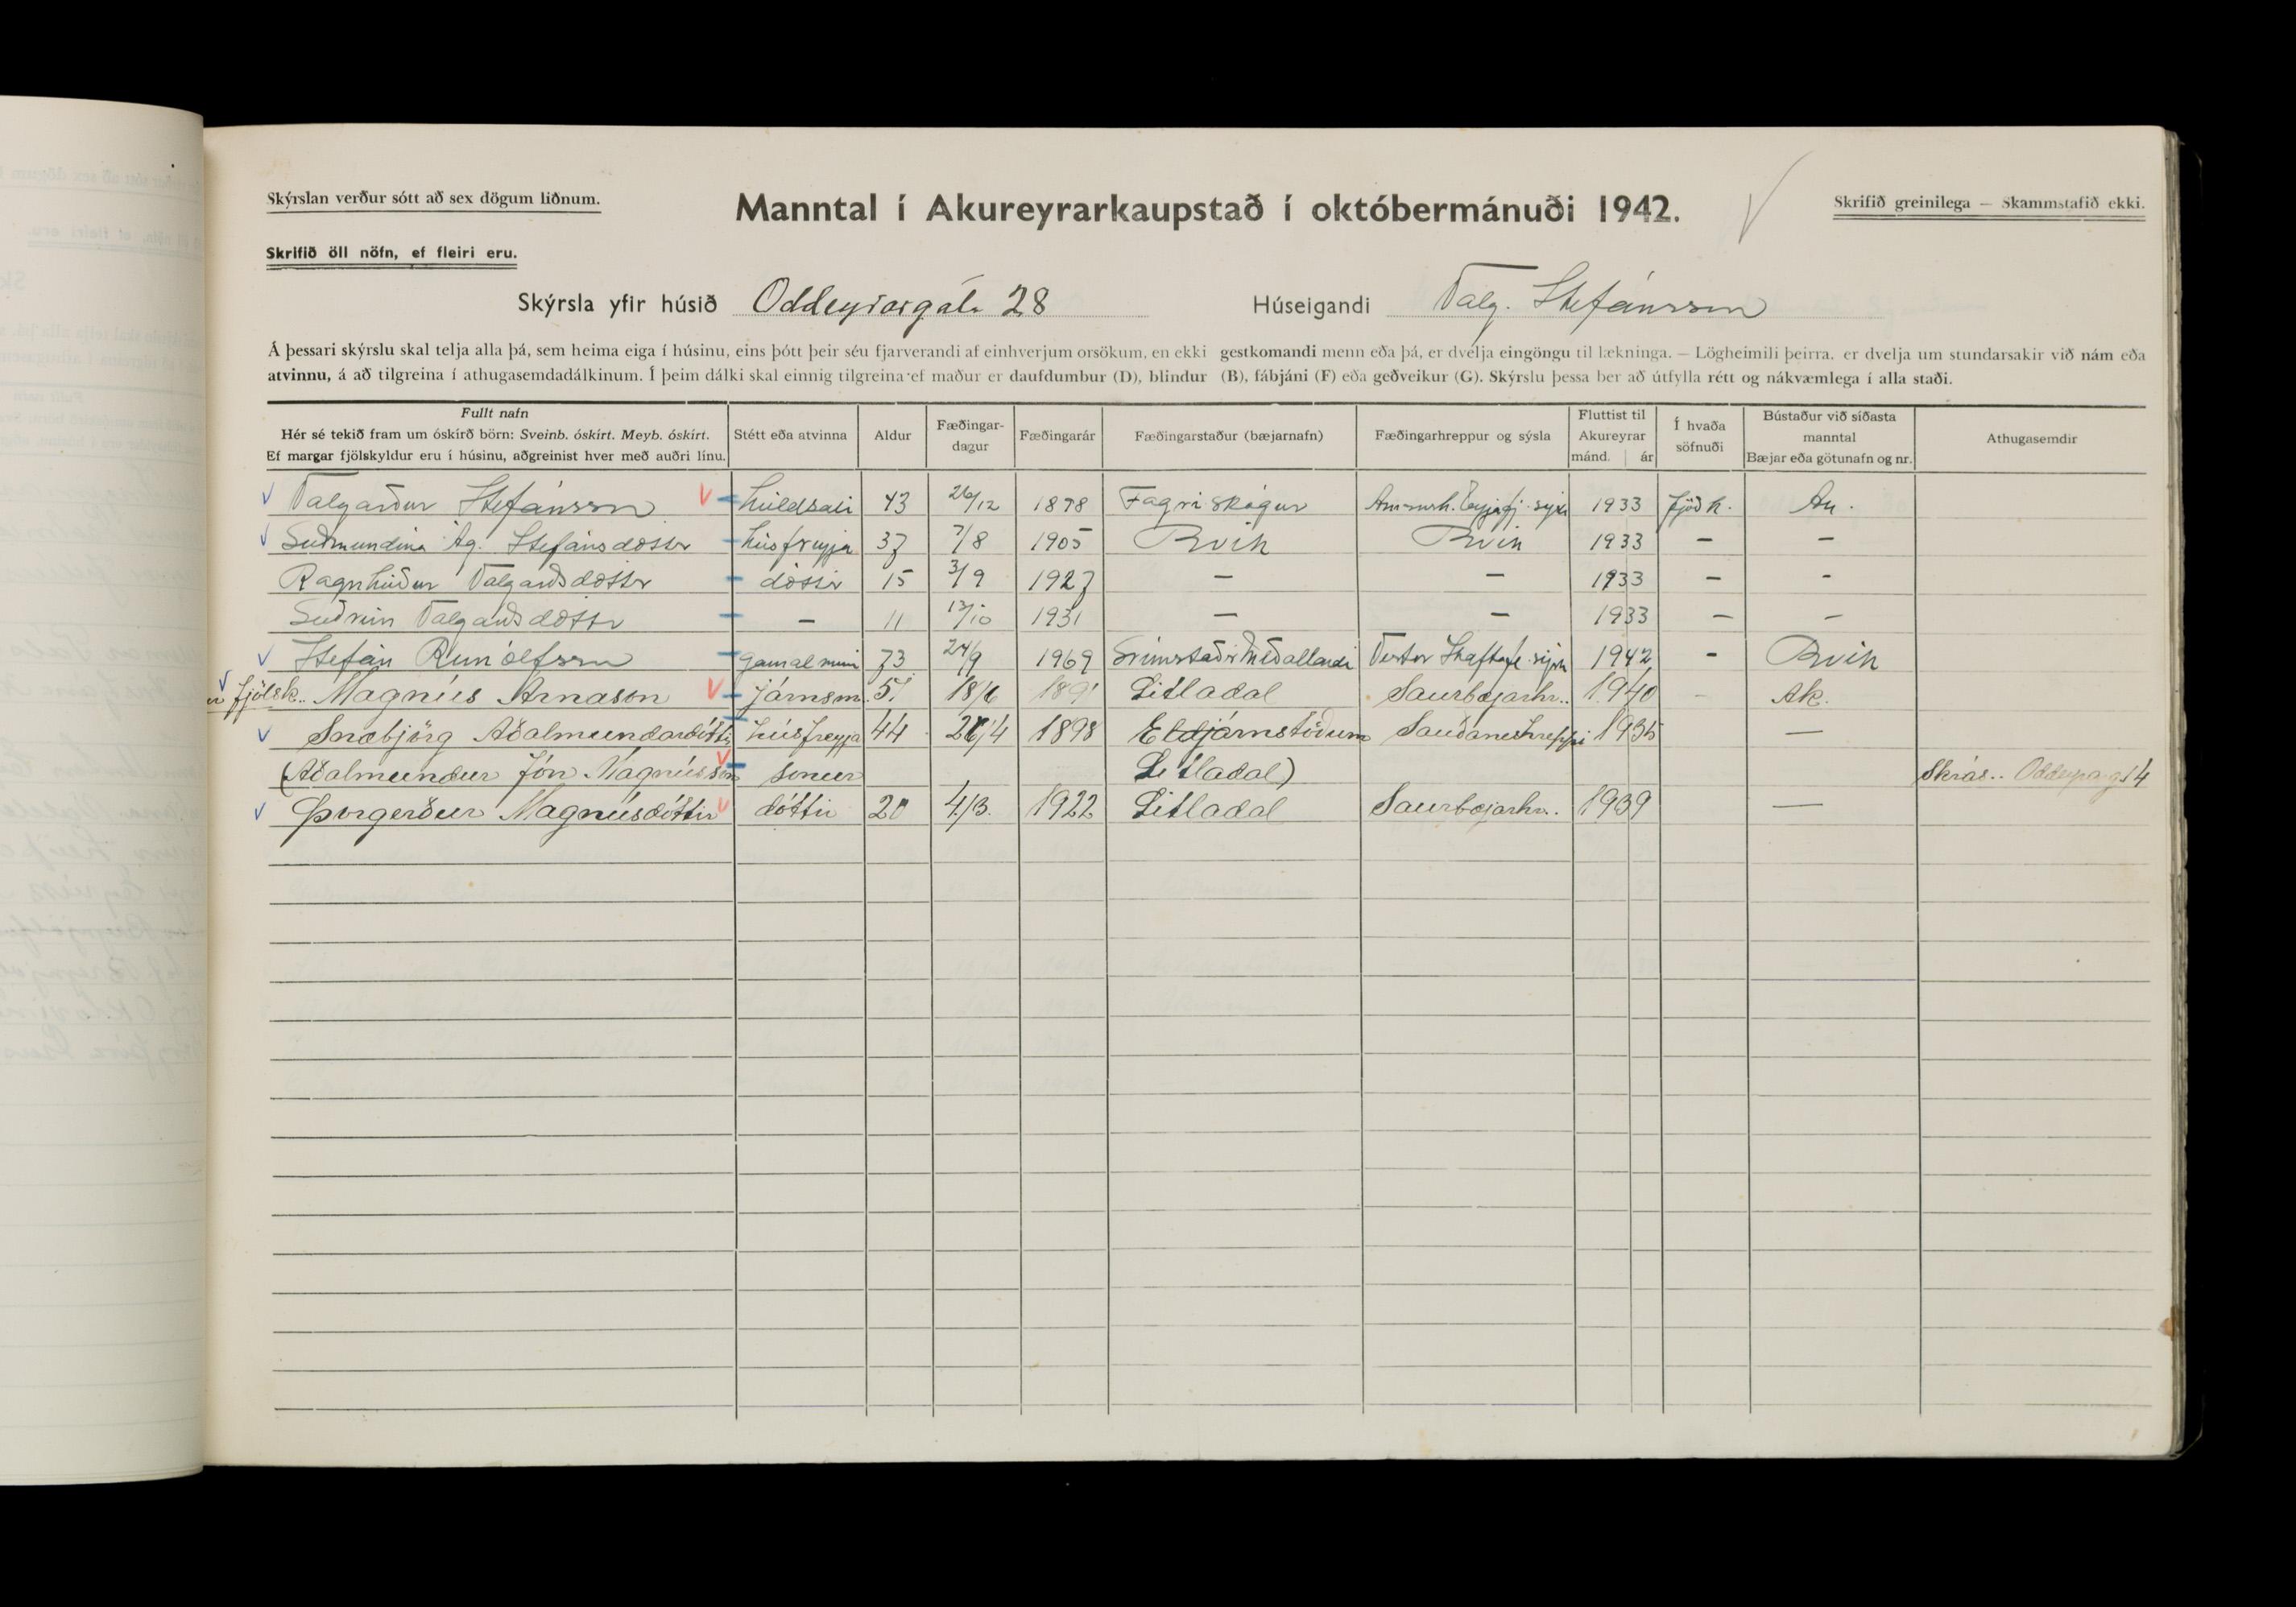 Skýrslan verður sótt að sex dögum liðnum.
Manntal í Akureyrarkaupstað í októbermánuði 1942.
Skrifið greinilega — Skammstafið ekki.
Skrifið öll nöfn, ef fleiri eru.
Skýrsla yfir húsið Oddeyrargáta 28 Húseigandi Valg. Stefánsson
Á þessari skýrslu skal telja alla þá, sem heima eiga í húsinu, eins þótt þeir séu fjarverandi af einhverjum orsökum, en ekki gestkomandi menn eða þá, er dvelja eingöngu til lækninga. — Lögheimili þeirra, er dvelja um stundarsakir við nám eða
atvinnu, á að tilgreina í athugasemdadálkinum. Í þeim dálki skal einnig tilgreina ef maður er daufdumbur (D), blindur (B), fábjáni (F) eða geðveikur (G). Skýrslu þessa ber að útfylla rétt og nákvæmlega í alla staði.
Fullt nafn
Hér sé tekið fram um óskírð börn: Sveinb. óskírt. Meyb. óskírt.
Ef margar fjölskyldur eru í húsinu, aðgreinist hver með auðri línu.
Stétt eða atvinna
Aldur
Fæðingar-
dagur
Fæðingarár
Fæðingarstaður (bæjarnafn)
Fæðingarhreppur og sýsla
Fluttist til
Akureyrar
mánd. ár
Í hvaða
söfnuði
Bústaður við síðasta
manntal
Bæjar eða götunafn og nr.
Athugasemdir
Valgarður Stefánsson heildsali 43 26/12 1898 Fagriskógur 1933 Þjóðk. Ak.
Guðmundína Ág. Stefánsdóttir húsfreyja 37 7/8 1905 Rvík Rvík 1933 — —
Ragnheiður Valgarðsdóttir dóttir 15 3/9 1927 — — 1933 — -
Guðrún Valgarðsdóttir — 11 13/10 1931 — — 1933 — —
Stefán Runólfsson gamalmenni 73 24/9 1969 Grímstaðir Meðallandi Vestur Skaftafe. sýsla 1942 - Rvík
fjölsk. Magnús Árnason járnsm. 51 18/6 1891 Litladal Saurbæjarhr. 1940 - Ak.
Snæbjörg Aðalmundardóttir húsfreyja 44 26/4 1898 Eldjárnstöðum Sauðaneshreppi 1935 —
(Aðalmundur Jón Magnússon sonur Litladal) Skrás. Oddeyrarg. 14
Þorgerður Magnúsdóttir dóttir 20 4/3. 1922 Litladal Saurbæjarhr. 1939 —